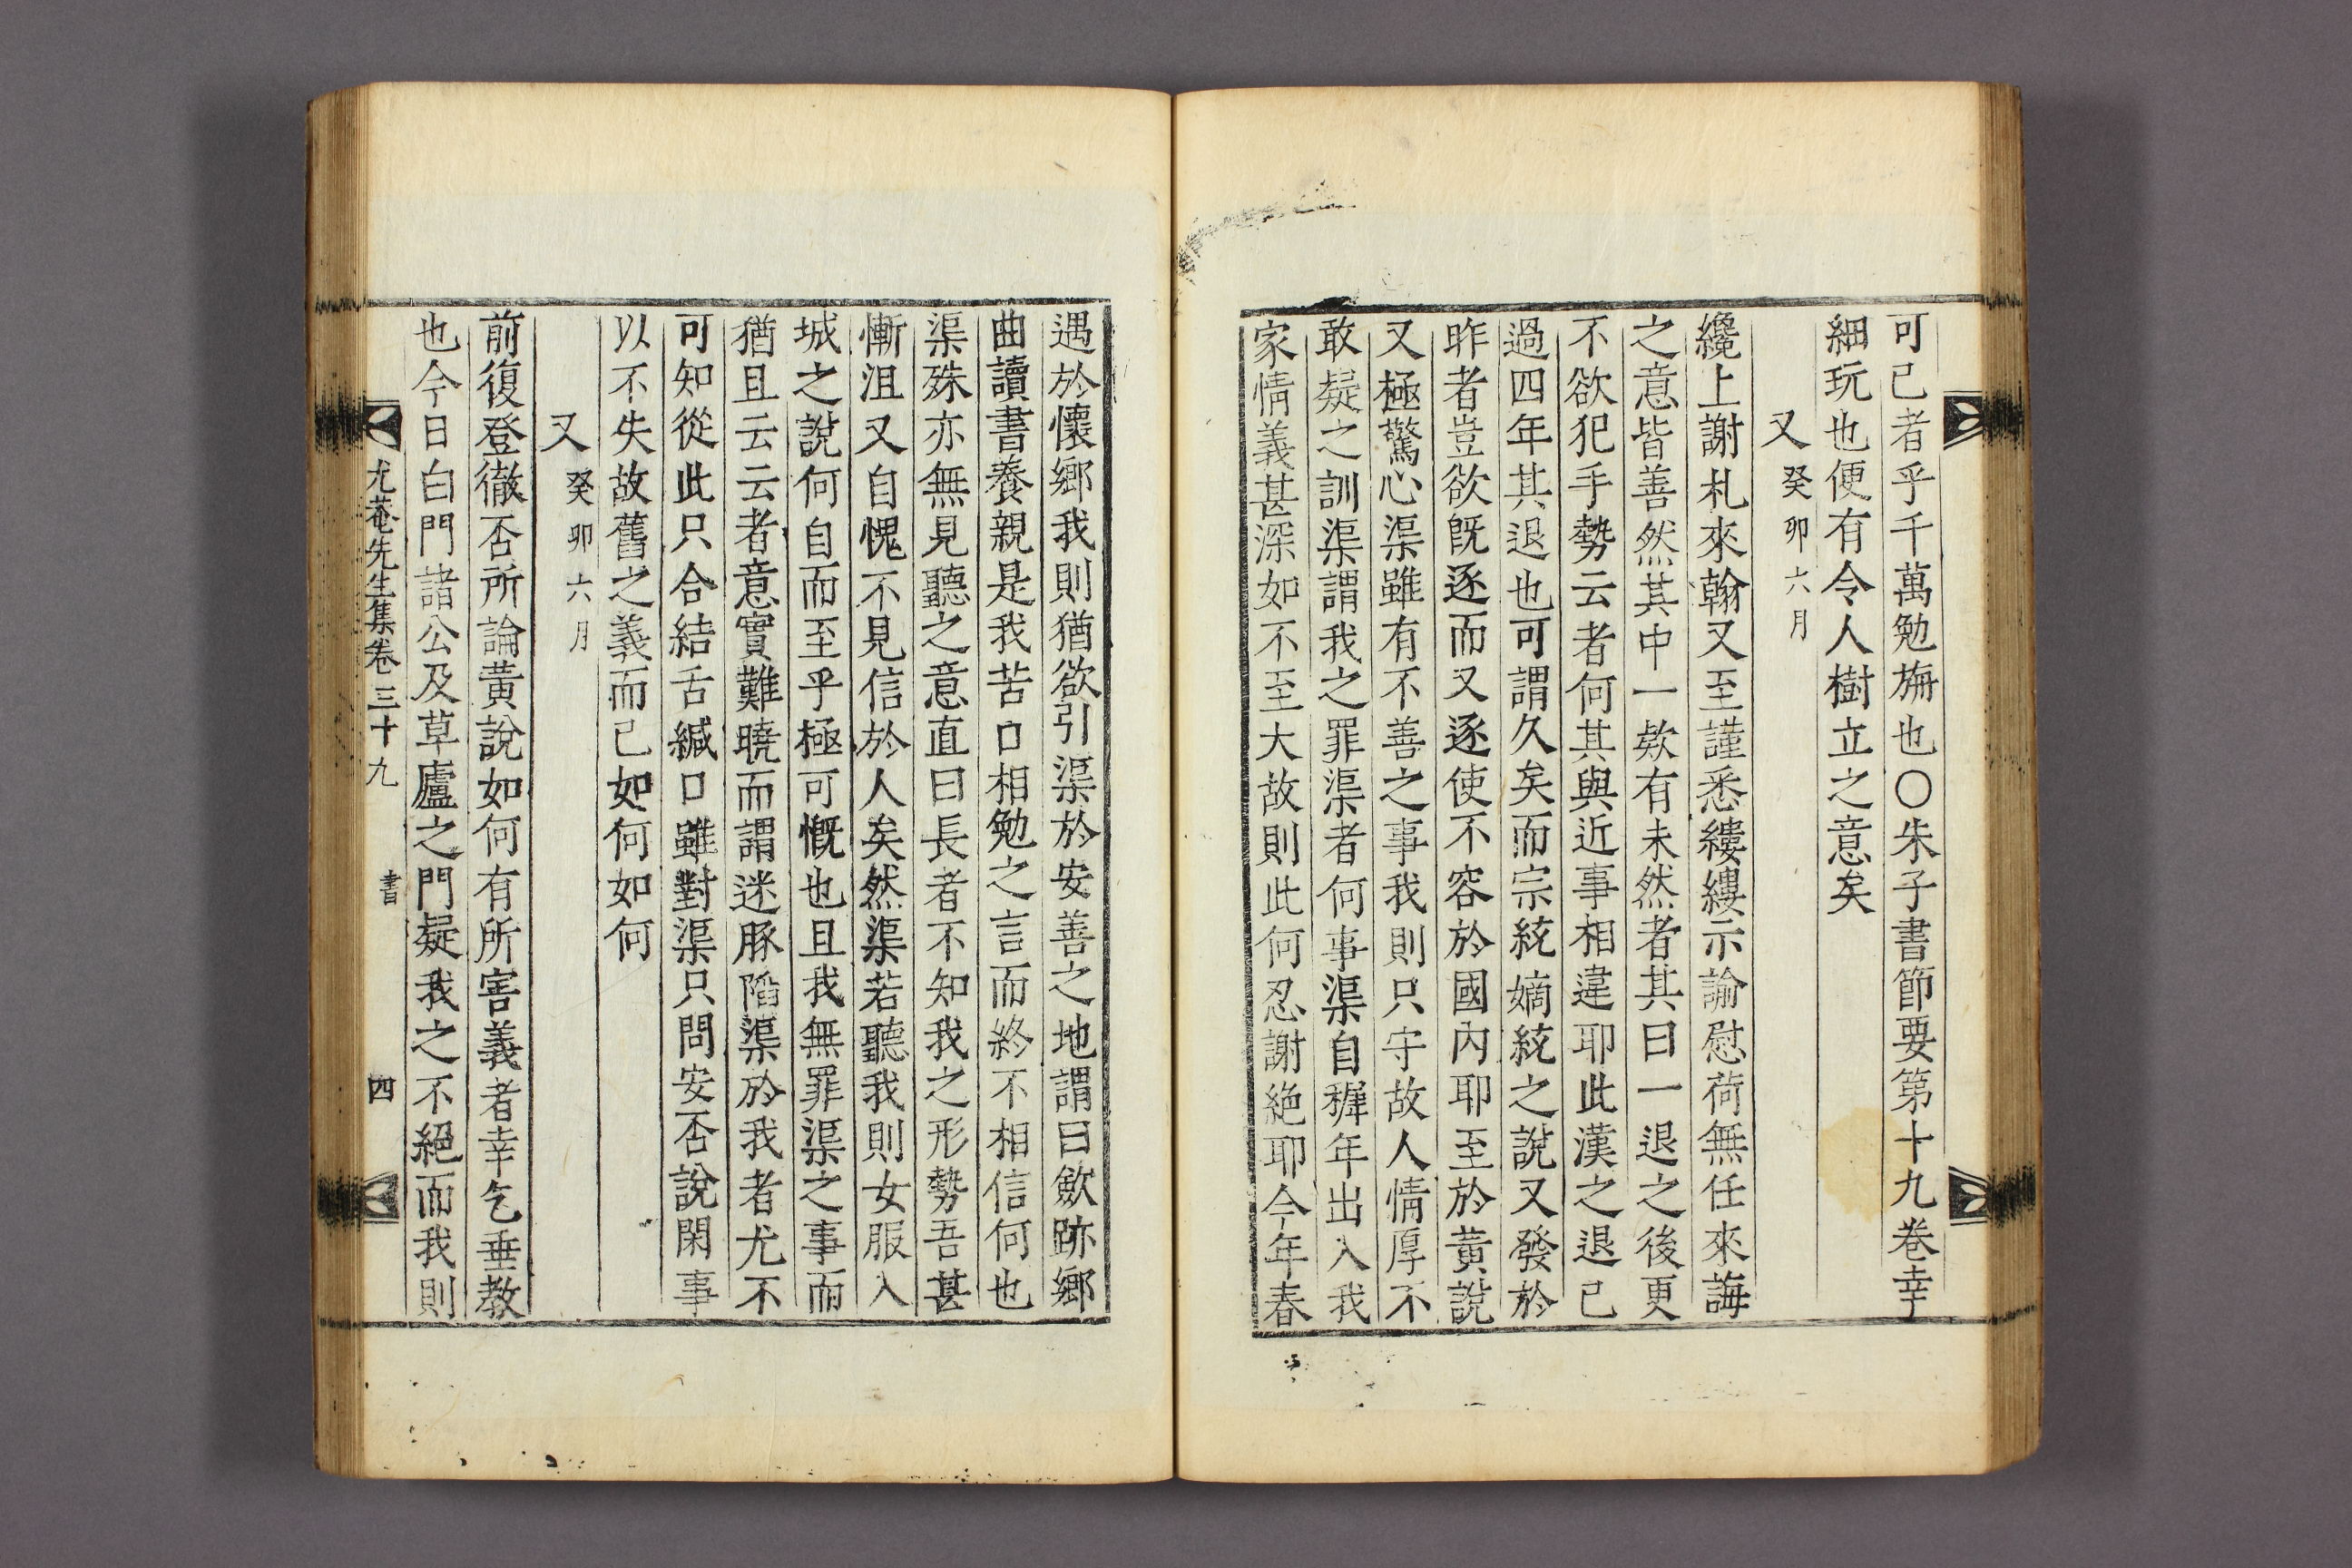 可已者乎千萬勉旃也〇朱子書節要第十九卷幸
細玩也便有令人樹立之意矣
又癸卯六月
纔上謝札來翰又至謹悉縷縷示諭慰荷無任來誨
之意皆善然其中一欵有未然者其曰一退之後更
不欲犯手勢云者何其與近事相違耶此漢之退已
過四年其退也可謂久矣而宗統嫡統之說又發於
昨者豈欲旣逐而又逐使不容於國內耶至於黃說
又極驚心渠雖有不善之事我則只守故人情厚不
敢疑之訓渠謂我之罪渠者何事渠自穉年出入我
家情義甚深如不至大故則此何忍謝絶耶今年春
遇於懷鄕我則猶欲引渠於安善之地謂曰斂跡鄕
曲讀書養親是我苦口相勉之言而終不相信何也
渠殊亦無見聽之意直曰長者不知我之形勢吾甚
慚沮又自愧不見信於人矣然渠若聽我則女服入
城之說何自而至乎極可慨也且我無罪渠之事而
猶且云云者意實難曉而謂迷豚陷渠於我者尤不
可知從此只合結舌緘口雖對渠只問安否說閑事
以不失故舊之義而已如何如何
又癸卯六月
前復登徹否所論黃說如何有所害義者幸乞垂教
也今日白門諸公及草廬之門疑我之不絕而我則
尤菴先生集卷三十九 書 四